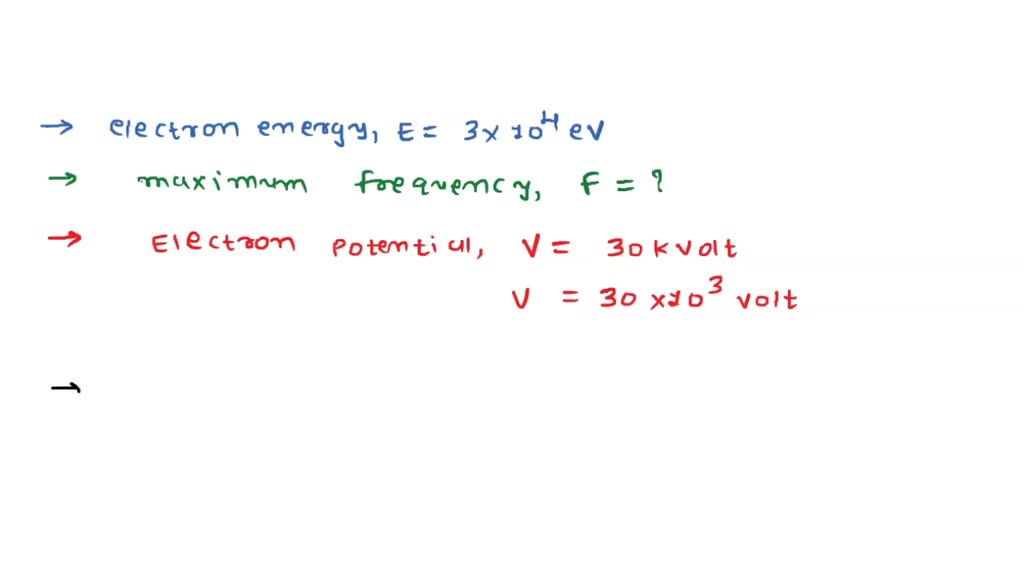 → electron energy, E = 3 x 10⁴ eV
→ maximum frequency, F = ?
→ Electron potential, V = 30 K volt
V = 30 x 10³ volt
→